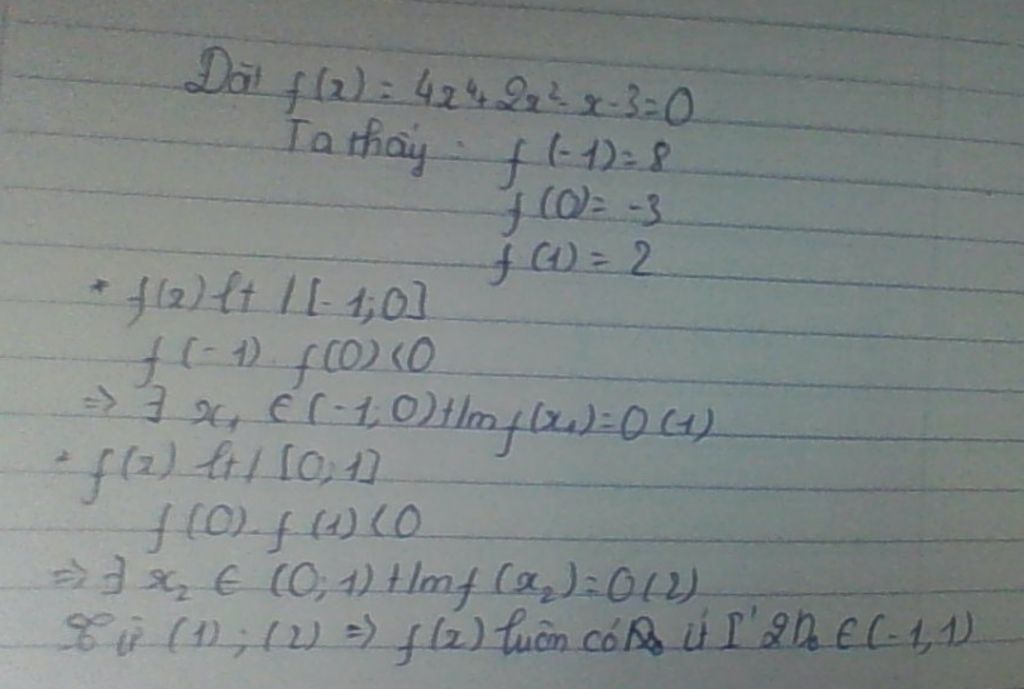 Đặt f(x) = 4x⁴ + 2x² - x - 3 = 0
Ta thấy : f(-1) = 8
f(0) = -3
f(1) = 2
* f(x) lt / [-1; 0]
f(-1) . f(0) < 0
⇒ ∃ x₁ ∈ (-1; 0) t/m f(x₁) = 0 (1)
* f(x) lt / [0; 1]
f(0) . f(1) < 0
⇒ ∃ x₂ ∈ (0; 1) t/m f(x₂) = 0 (2)
Từ (1) ; (2) ⇒ f(x) luôn có ít I' 2 n₀ ∈ (-1, 1)